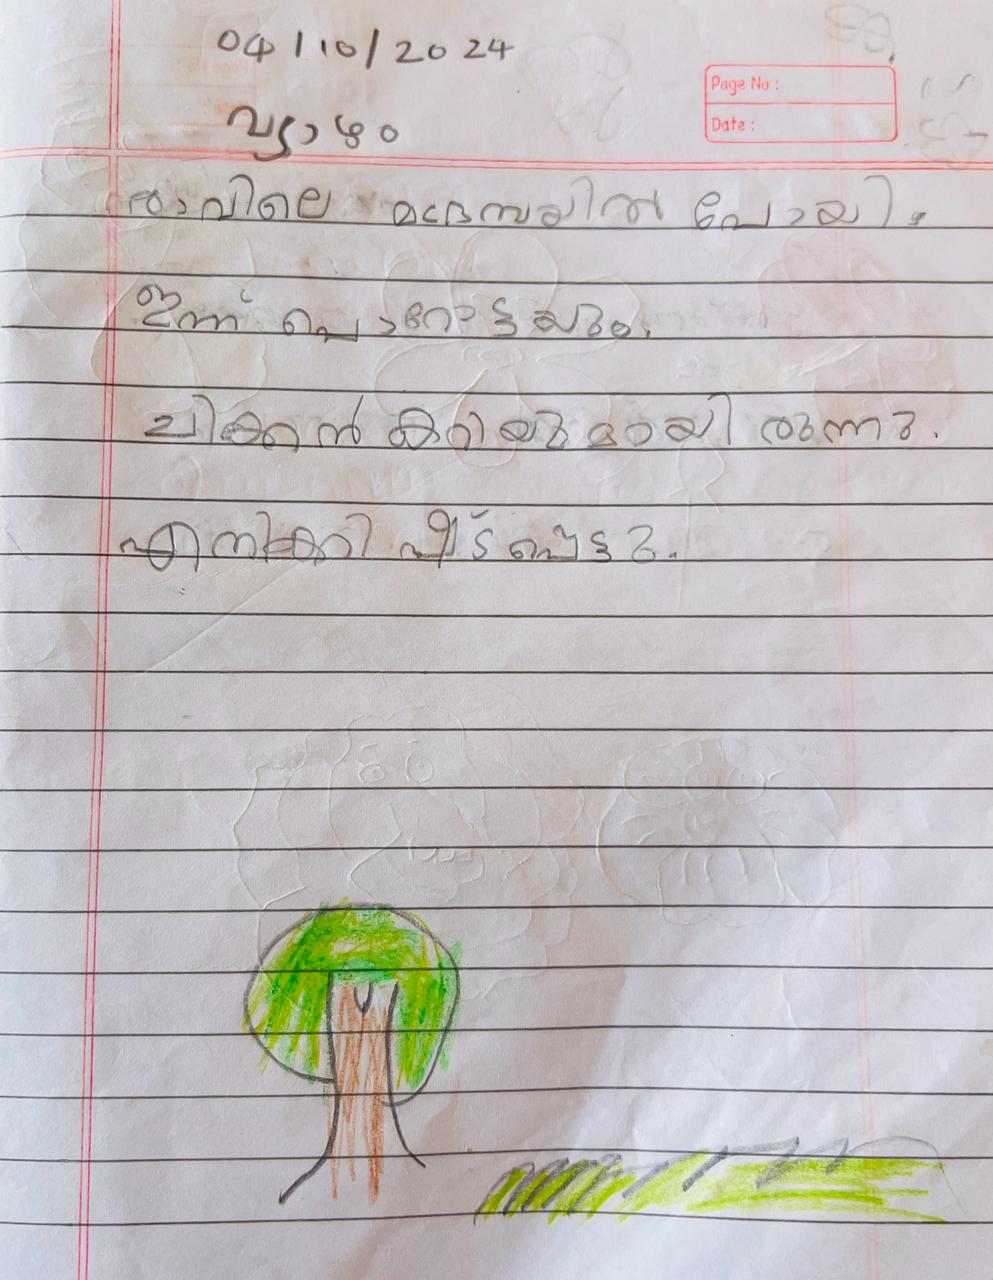 04/10/2024
വ്യാഴം
Page No :
Date :
രാവിലെ മദ്രസയിൽ പോയി.
ഇന്ന് പൊറോട്ടയും.
ചിക്കൻ കറിയുമായി രുന്നു.
എനിക്കി ഷ്ടപ്പെട്ടു.